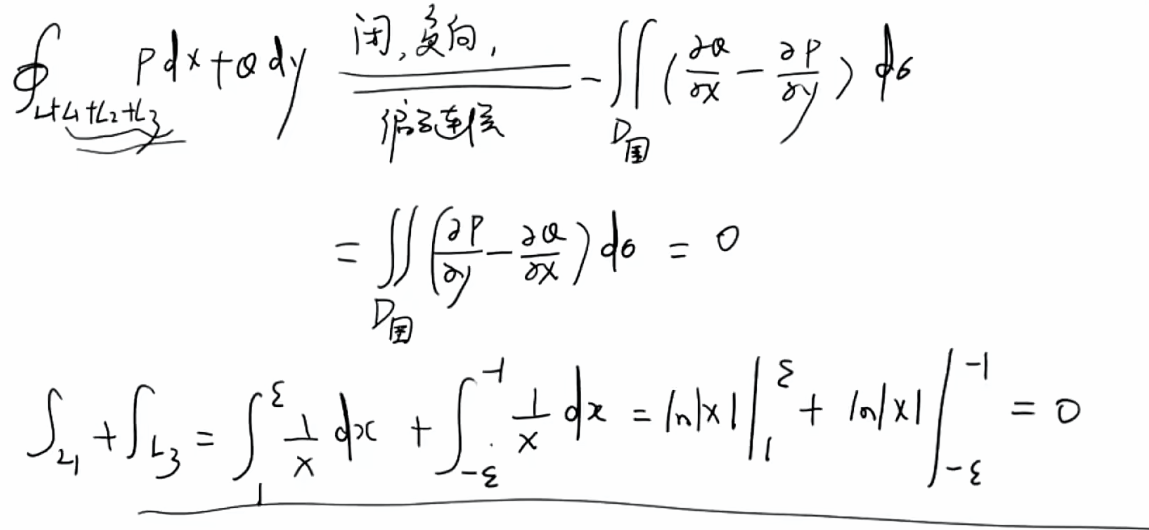 ∮_{L+L₁+L₂+L₃} Pdx+Qdy \xlongequal[偏导连续]{闭,负向,} -∬_{D围} (∂Q/∂x - ∂P/∂y) dσ
= ∬_{D围} (∂P/∂y - ∂Q/∂x) dσ = 0
∫_{L₁} + ∫_{L₃} = ∫_1^ε 1/x dx + ∫_{-ε}^{-1} 1/x dx = ln|x| |_1^ε + ln|x| |_{-ε}^{-1} = 0